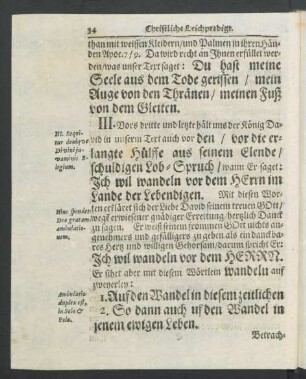 34 Christliche Leichpredigt.
than mit weissen Kleidern/und Palmen in ihren Hän-
den Apoc. 7/9. Da wird recht an Ihnen erfüllet wer-
den/was unser Text saget: Du hast meine
Seele aus dem Tode gerissen / mein
Auge von den Thränen/ meinen Fuß
von dem Gleiten.
III. Vors dritte und letzte hält uns der König Da-
vid in unserm Text auch vor den / vor die er-
langte Hülffe aus seinem Elende/
schuldigen Lob-Spruch/ wann Er saget:
Ich wil wandeln vor dem HErrn im
Lande der Lebendigen. Mit diesen Wor-
ten erkläret sich der Liebe David seinem treuen GOtt/
wegl erwiesener gnädiger Errettung hertzlich Danck
zu sagen. Er weiß seinem frommen GOtt nichts an-
genehmers und gefälligers zu geben als ein danckba-
res Hertz und willigen Gehorsam/darum spricht Er:
Ich wil wandeln vor dem HERRN.
Er sihet aber mit diesem Wörtlein wandeln auf
zweyerley:
1. Auf den Wandel in diesem zeitlichen
2. So dann auch uf den Wandel in
jenem ewigen Leben.
Betrach-
III. Sequi-
tur
Divini ju-
vaminis E-
logium.
Deo gratam
ambulatio-
nem.
Ambulatio
duplex est,
in Solo &
Polo.